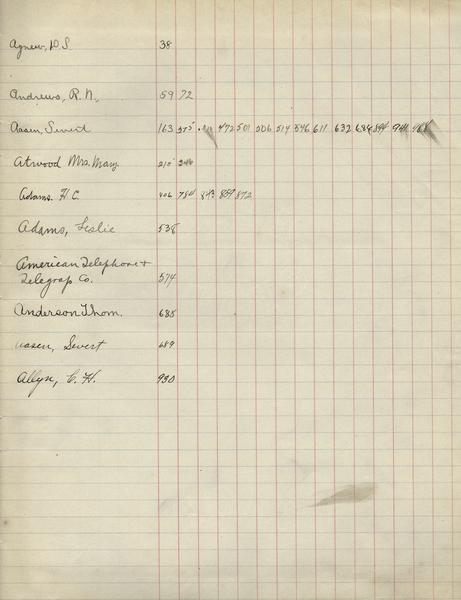 Agnew, D. S. 38
Andrews, R. N., 59 72
Aasen, Sivert 163 375 472 501 506 514 546 611 632 684 894 941 968
Atwood Mrs. Mary 215 246
Adams. H C. 406 784 843 864 872
Adams, Leslie 538
American Telephone +
Telegrap Co. 574
Anderson Thom. 685
Aasen, Severt 689
Allyn, C. H. 930